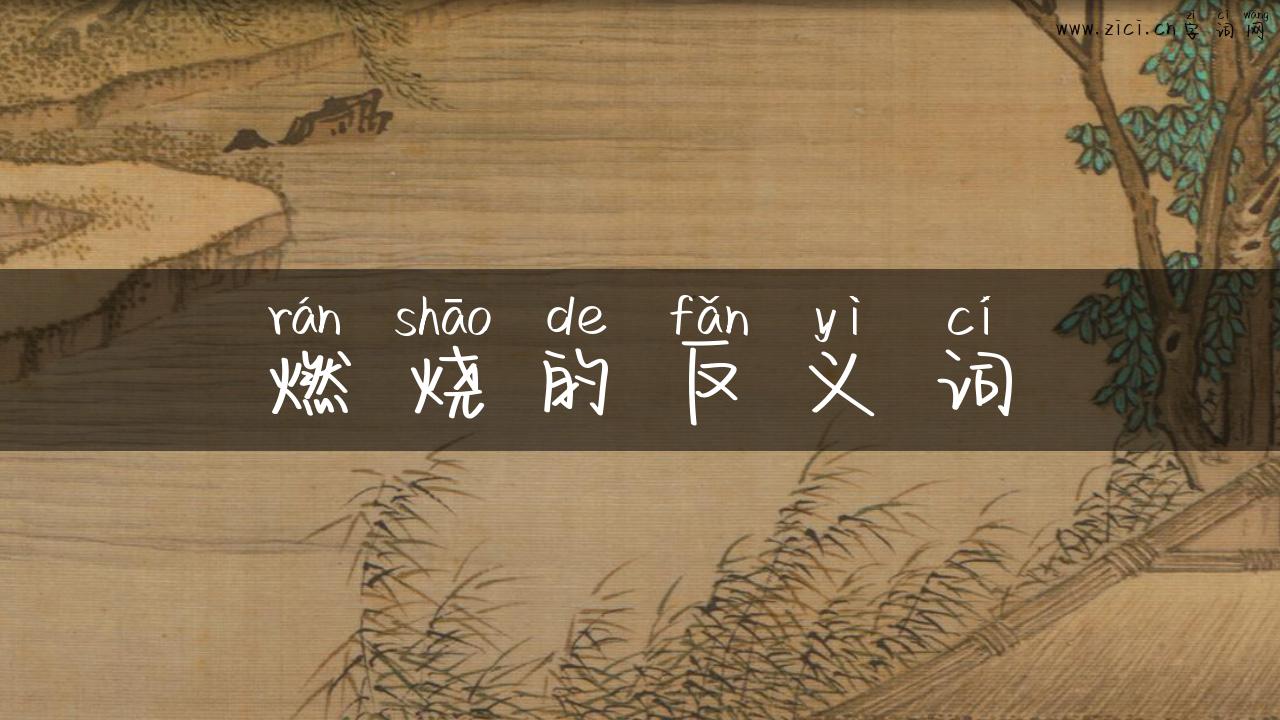 zì cí wǎng
www.zici.cn字词网
rán shāo de fǎn yì cí
燃烧的反义词